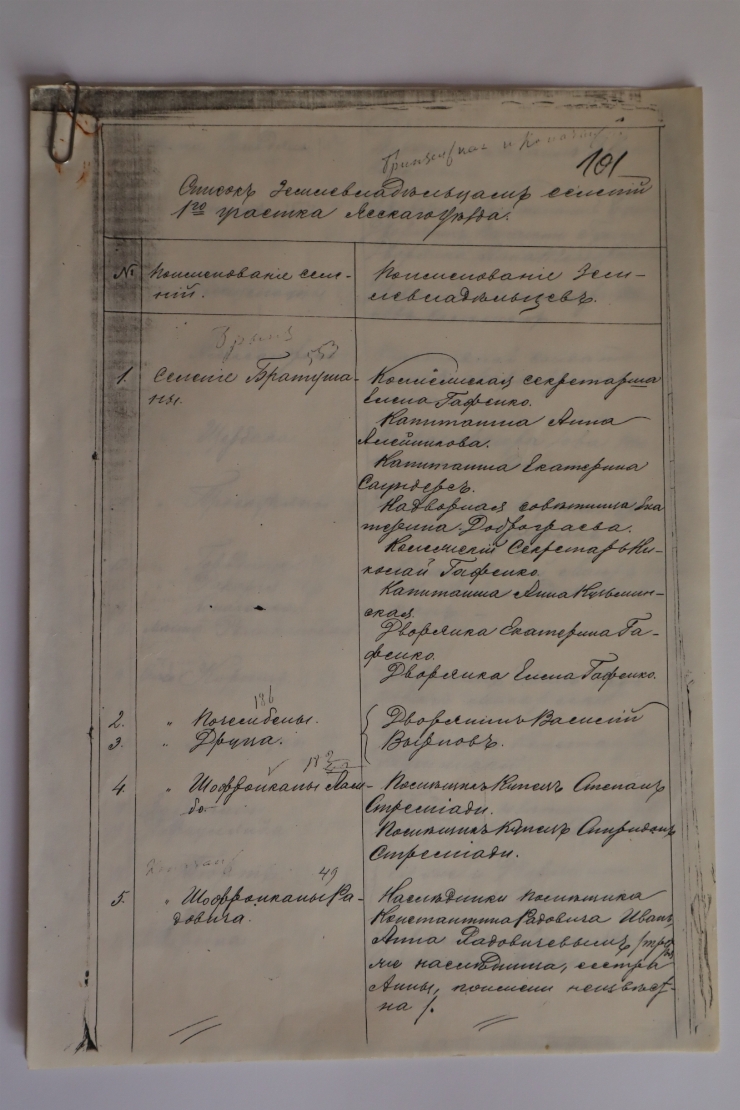 101
Списокъ Землевладѣльцамъ селеній
1го участка Ясскаго Уѣзда.
№ Поименованіе селе-
ній.
Поименованіе Зем-
левладѣльцевъ.
553
1. Селеніе Братуша-
ны.
Коллежская секретарша
Елена Гафенко.
Капитанша Анна
Алейникова.
Капитанша Екатерина
Саундерсъ.
Надворная совѣтница Ека
терина Доброграева.
Коллежскій Секретарь Ни-
колай Гафенко.
Капитанша Анна Кузьмин-
ская.
Дворянка Екатерина Га-
фенко.
Дворянка Елена Гафенко.
186
2. " Почембены.
3. " Друца.
Дворянинъ Василій
4 " Шофронканы
Помѣщикъ Купецъ Степанъ
Стремиади.
Помѣщикъ Купецъ Спиридонъ
Стремиади.
49
5. " Шофронканы Ра-
довича.
Наслѣдники помѣщика
Константина Радовича Иванъ,
Анна Радовичевымъ /тре
тье наслѣдница, сестра
Анны, поимени неизвѣст-
на /.